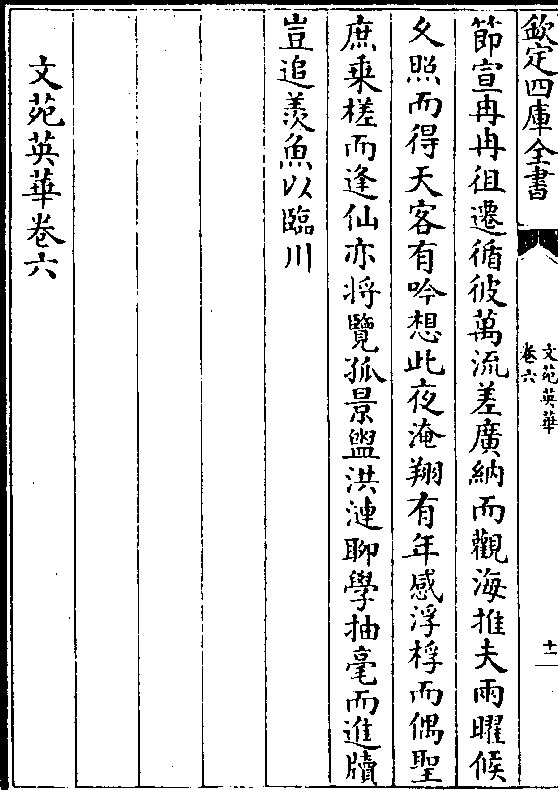 欽定四庫全書
文苑英華
卷六
十一
節宣冉冉徂遷循彼萬流差廣納而觀海推夫兩曜候
夊照而得天客有吟想此夜淹翔有年感浮桴而偶聖
庶乗槎而逢仙亦将覽孤景盥洪漣聊學抽毫而進牘
豈追羨魚以臨川
文苑英華卷六